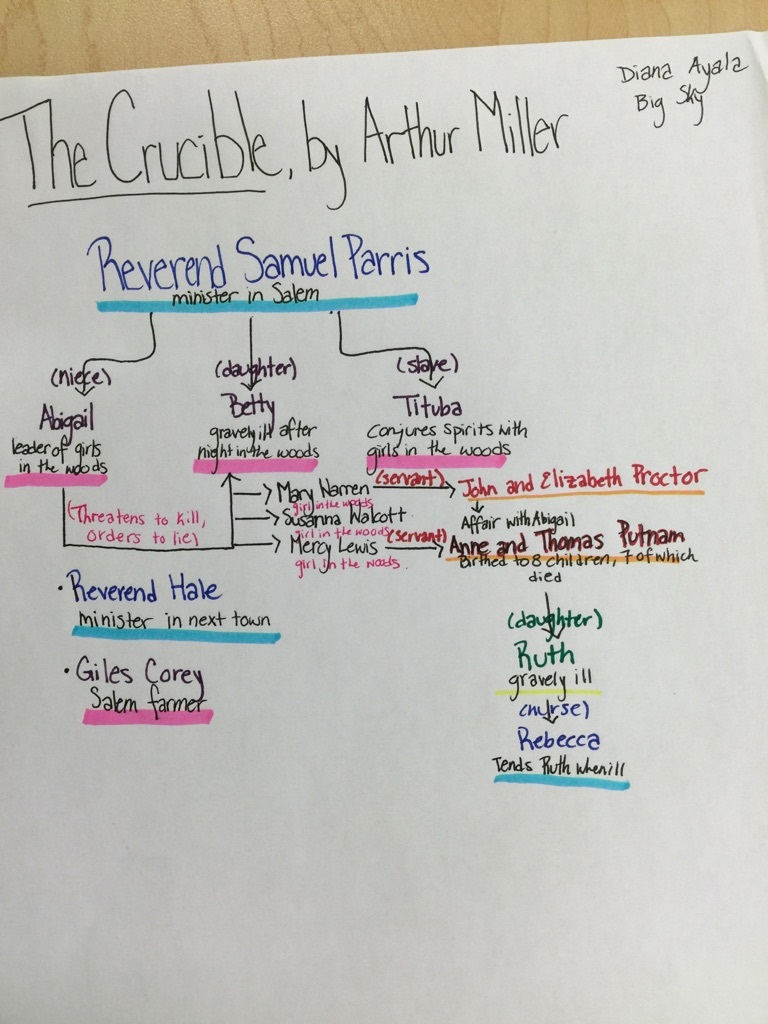 Diana Ayala
Big Sky
The Crucible, by Arthur Miller
Reverend Samuel Parris
minister in Salem
(niece)
Abigail
leader of girls
in the woods
(daughter)
Betty
gravely ill after
night in the woods
(slave)
Tituba
Conjures spirits with
girls in the woods
(Threatens to kill,
orders to lie)
Mary Warren
girl in the woods
(servant)
John and Elizabeth Proctor
Affair with Abigail
Susanna Walcott
girl in the woods
Mercy Lewis
girl in the woods
(servant)
Anne and Thomas Putnam
Birthed to 8 children, 7 of which
died
(daughter)
Ruth
gravely ill
(nurse)
Rebecca
Tends Ruth when ill
· Reverend Hale
minister in next town
· Giles Corey
Salem farmer